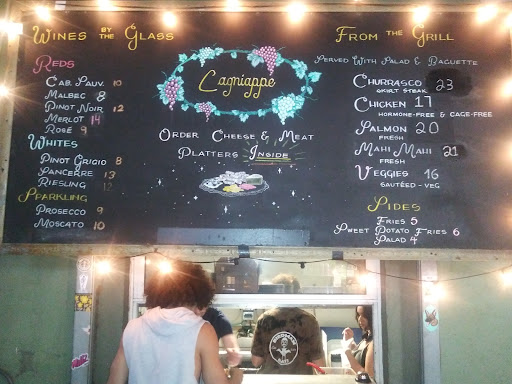 Wines by the Glass
Reds
Cab. Sauv. 10
Malbec 8
Pinot Noir 12
Merlot 14
Rosé 9
Whites
Pinot Grigio 8
Sancerre 13
Riesling 12
Sparkling
Prosecco 9
Moscato 10
Lagniappe
Order Cheese & Meat
Platters Inside
From the Grill
Served With Salad & Baguette
Churrasco 23
skirt steak
Chicken 17
hormone-free & cage-free
Salmon 20
fresh
Mahi Mahi 21
fresh
Veggies 16
sautéed - veg
Sides
Fries 5
Sweet Potato Fries 6
Salad 4